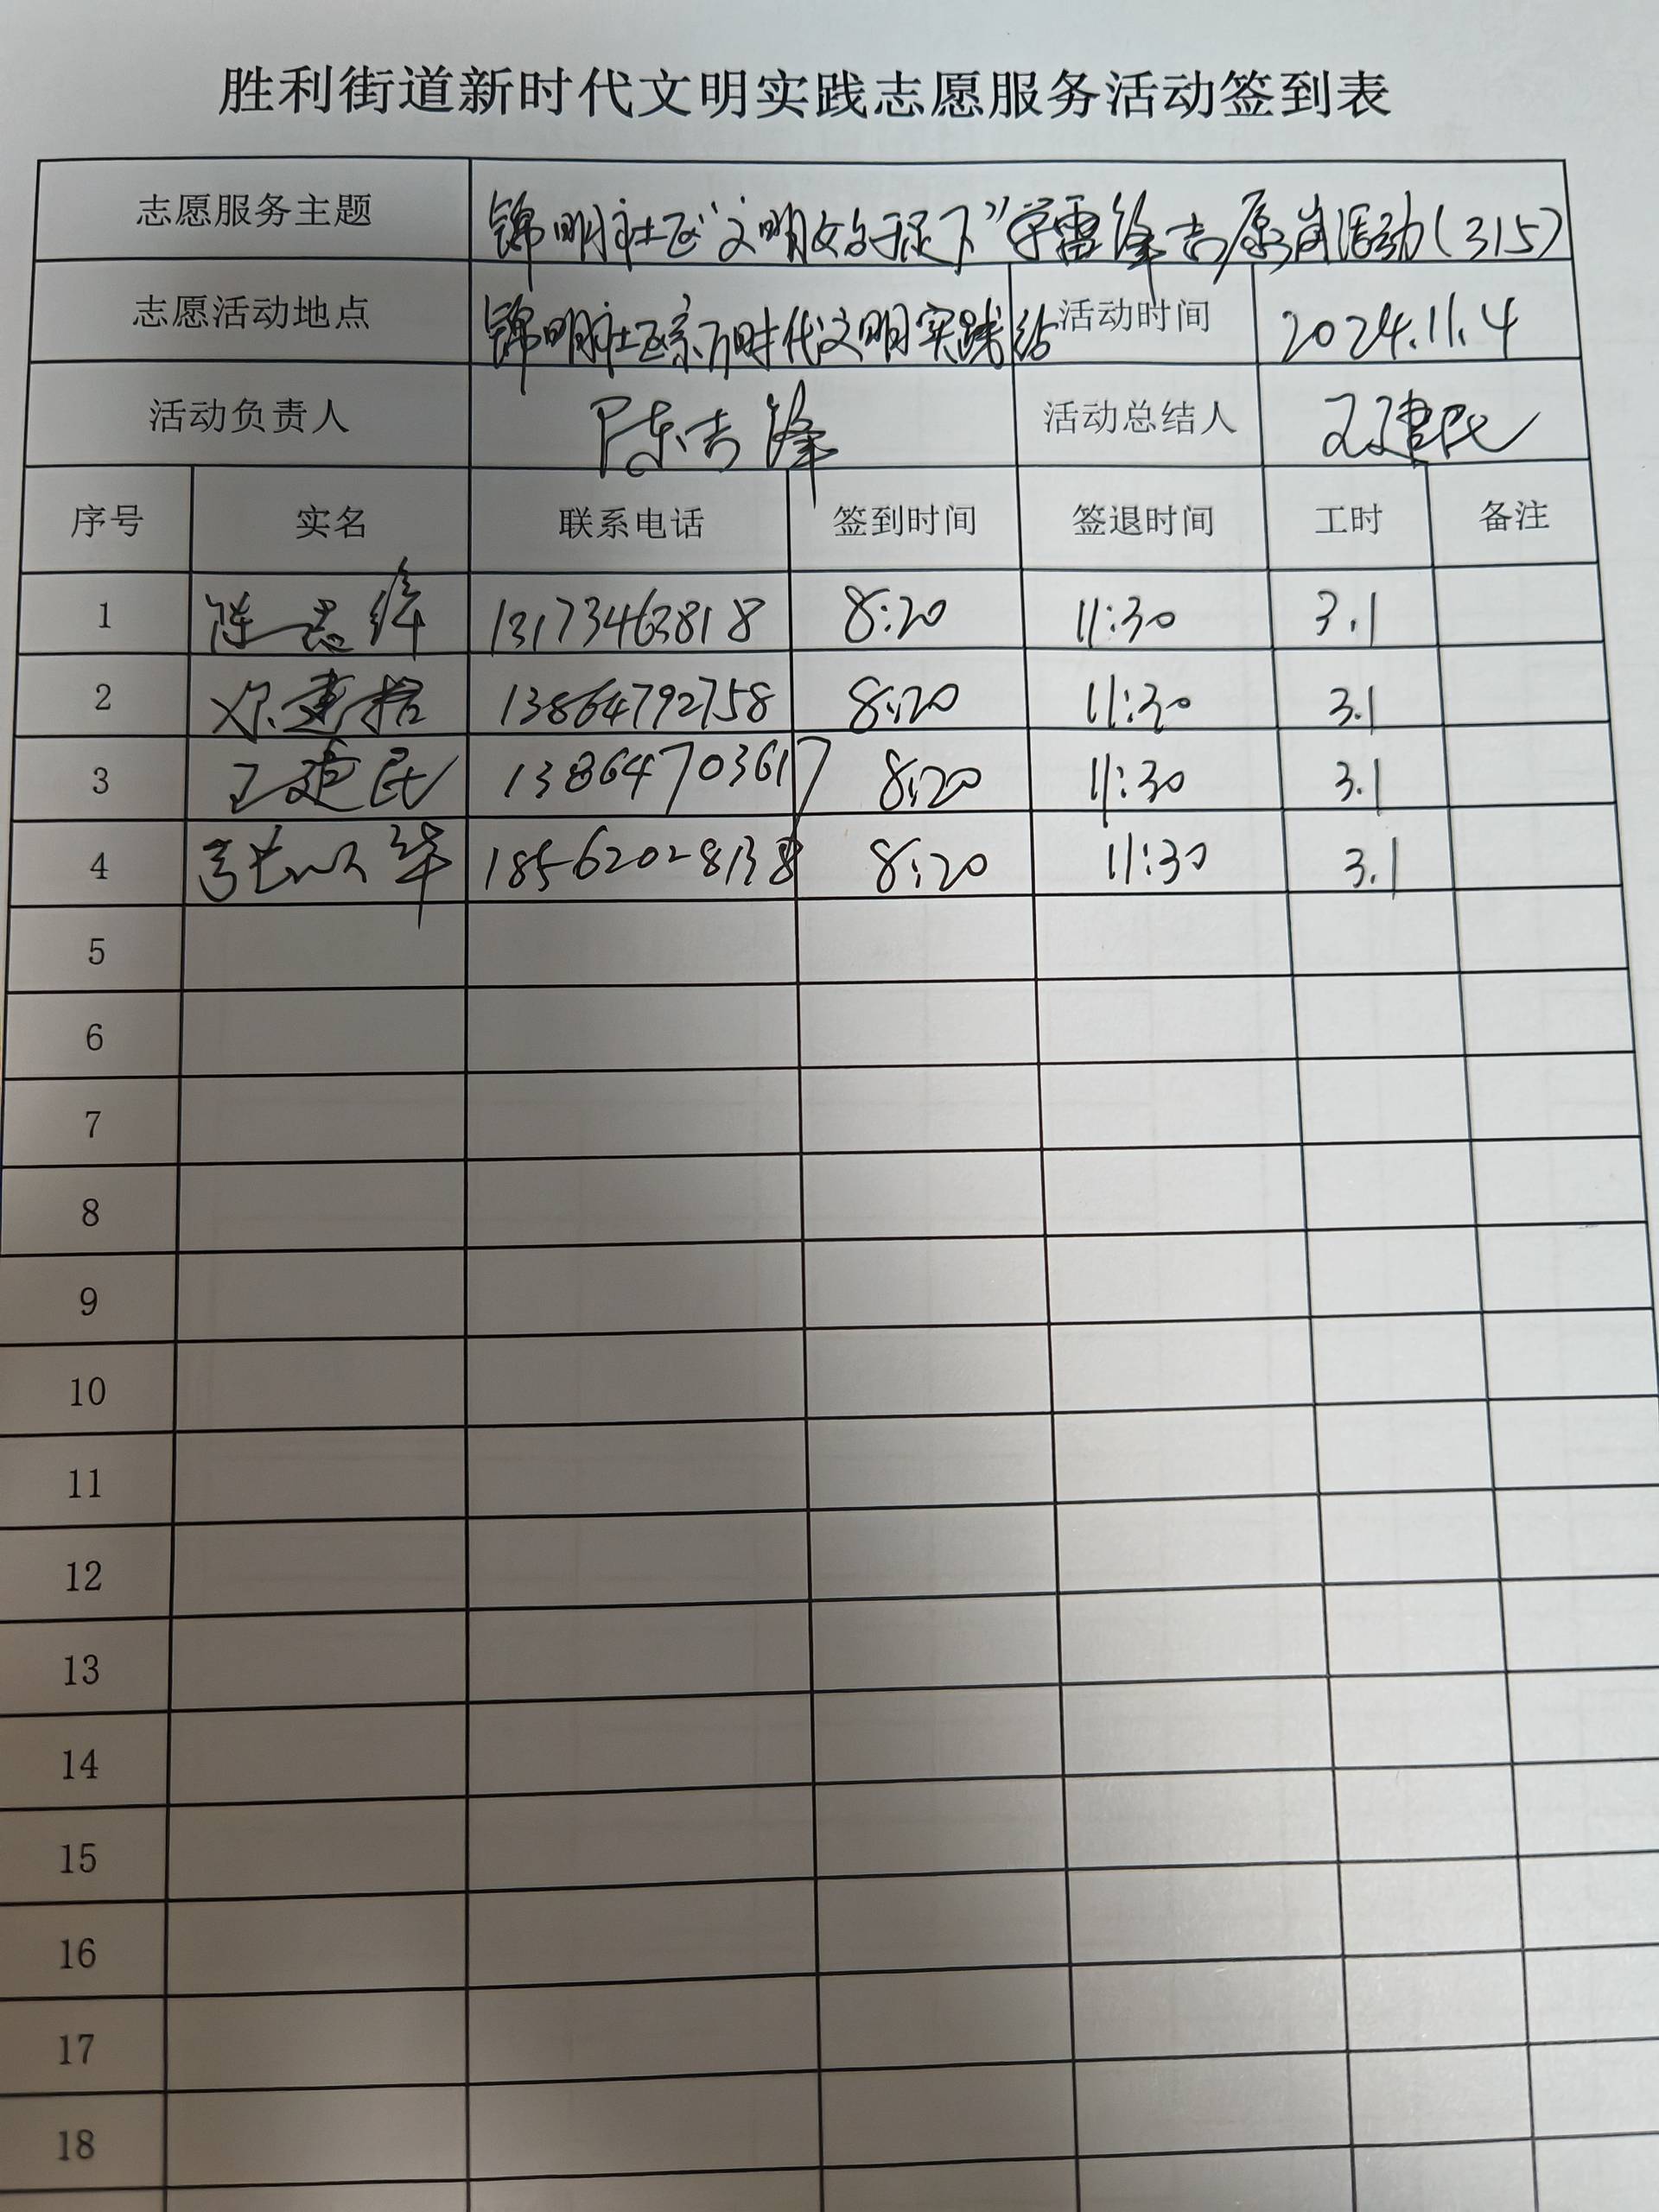 胜利街道新时代文明实践志愿服务活动签到表
志愿服务主题 锦明社区“文明始于足下”学雷锋志愿岗活动(315)
志愿活动地点 锦明社区新时代文明实践站 活动时间 2024.11.4
活动负责人 陈志锋 活动总结人 王建民
序号 实名 联系电话 签到时间 签退时间 工时 备注
1 陈志锋 13173463818 8:20 11:30 3.1
2 13864792758 8:20 11:30 3.1
3 王建民 13864703617 8:20 11:30 3.1
4 18562028138 8:20 11:30 3.1
5
6
7
8
9
10
11
12
13
14
15
16
17
18